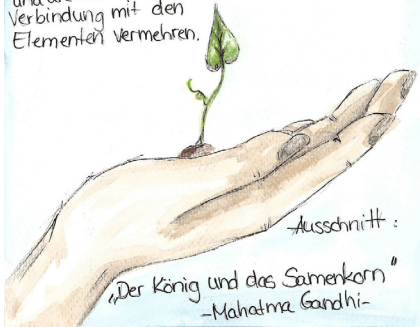 und
Verbindung mit den
Elementen vermehren.
Ausschnitt:
„Der König und das Samenkorn"
-Mahatma Gandhi-